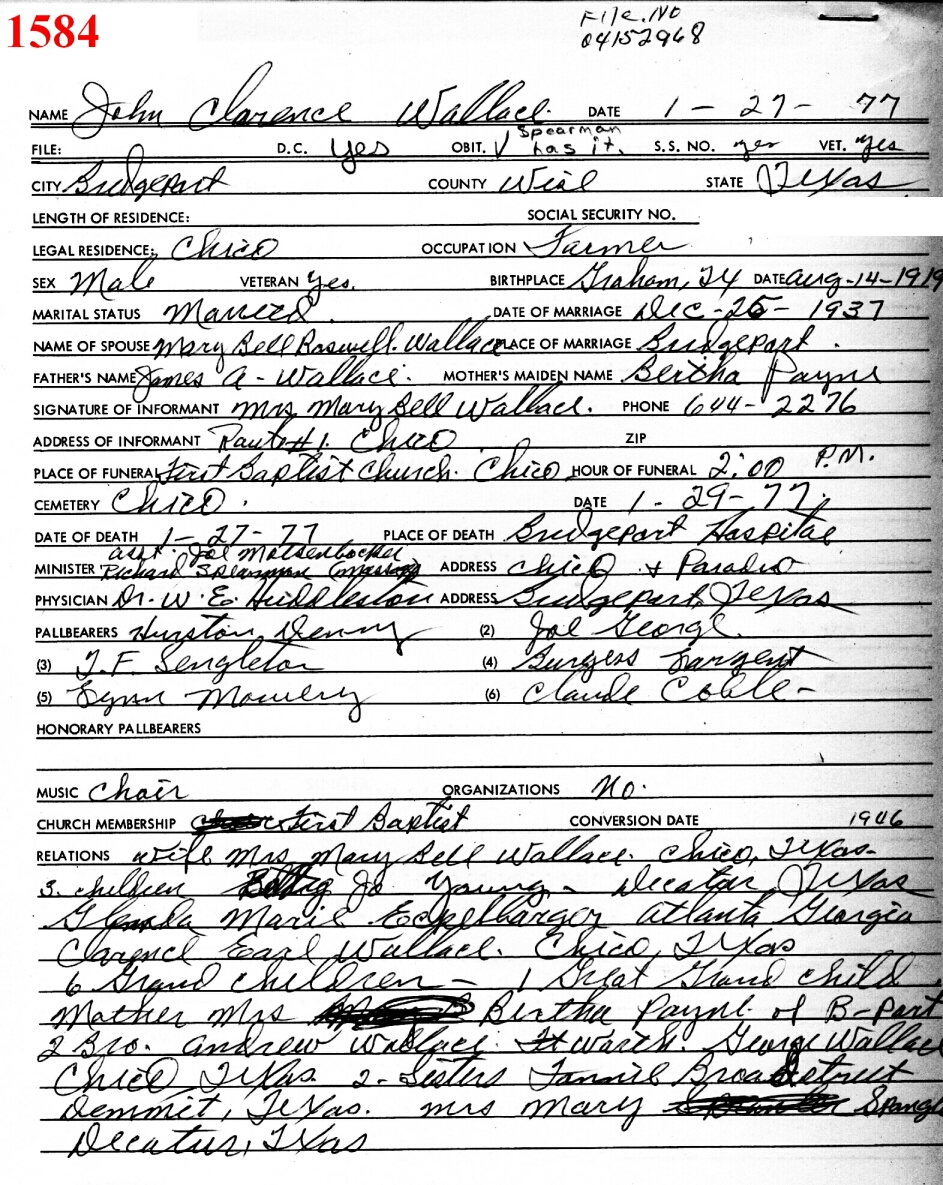 1584
File.No
04152968
NAME John Clarence Wallace. DATE 1 - 27 - 77
FILE: D.C. Yes OBIT. √ Spearman has it. S.S. NO. yes VET. Yes
CITY Bridgeport COUNTY Wise STATE Texas
LENGTH OF RESIDENCE: SOCIAL SECURITY NO.
LEGAL RESIDENCE: Chico OCCUPATION Farmer
SEX Male VETERAN Yes. BIRTHPLACE Graham, TX DATE Aug-14-1919
MARITAL STATUS Married. DATE OF MARRIAGE Dec-25-1937
NAME OF SPOUSE Mary Bell Boswell. Wallace PLACE OF MARRIAGE Bridgeport.
FATHER'S NAME James A - Wallace. MOTHER'S MAIDEN NAME Bertha Payne
SIGNATURE OF INFORMANT Mrs Mary Bell Wallace. PHONE 644-2276
ADDRESS OF INFORMANT Route #1. Chico ZIP
PLACE OF FUNERAL First Baptist Church. Chico HOUR OF FUNERAL 2:00 P.M.
CEMETERY Chico. DATE 1-29-77.
DATE OF DEATH 1-27-77 PLACE OF DEATH Bridgeport Hospital
asst. Joe Matsenbocker
MINISTER Richard Spearman ADDRESS Chico + Paradise
PHYSICIAN Dr. W. E. Huddleston ADDRESS Bridgeport, Texas
PALLBEARERS Hurston Denny (2) Joe George.
(3) T.F. Singleton (4) Burgess Sargent
(5) Lynn Mowery (6) Claude Coble-
HONORARY PALLBEARERS
MUSIC Choir ORGANIZATIONS No.
CHURCH MEMBERSHIP First Baptist CONVERSION DATE 1946
RELATIONS wife Mrs Mary Bell Wallace. Chico, Texas-
3. children Betty Jo Young - Decatur, Texas
Glenda Marie Eckelbarger Atlanta Georgia
Clarence Earl Wallace. Chico, Texas
6 Grand children - 1 Great Grand child
Mother Mrs Bertha Payne. of B-port
2 Bro. Andrew Wallace. Ft Worth. George Wallace
Chico Texas. 2-Sisters Fannie Broadstreet
Demmit, Texas. Mrs Mary Spangl
Decatur, Texas